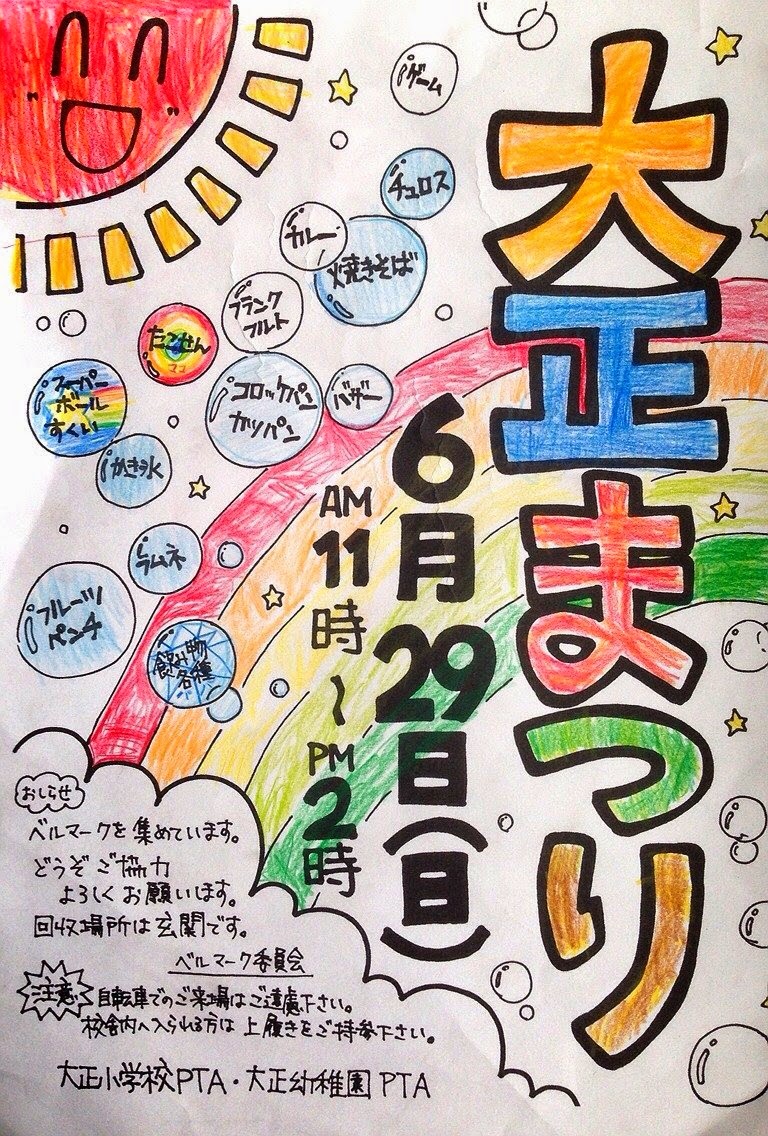 大正まつり
6月29日(日)
AM
11時
〜
PM
2時
ゲーム
チュロス
カレー
焼きそば
フランク
フルト
たこせん
ココ
スーパー
ボール
すくい
コロッケパン
カツパン
バザー
かき氷
ラムネ
フルーツ
ペンチ
飲み物
各種
おしらせ
ベルマークを集めています。
どうぞご協力
よろしくお願いします。
回収場所は玄関です。
ベルマーク委員会
注意
自転車でのご来場はご遠慮下さい。
校舎内へ入られる方は上履きをご持参下さい。
大正小学校PTA・大正幼稚園PTA